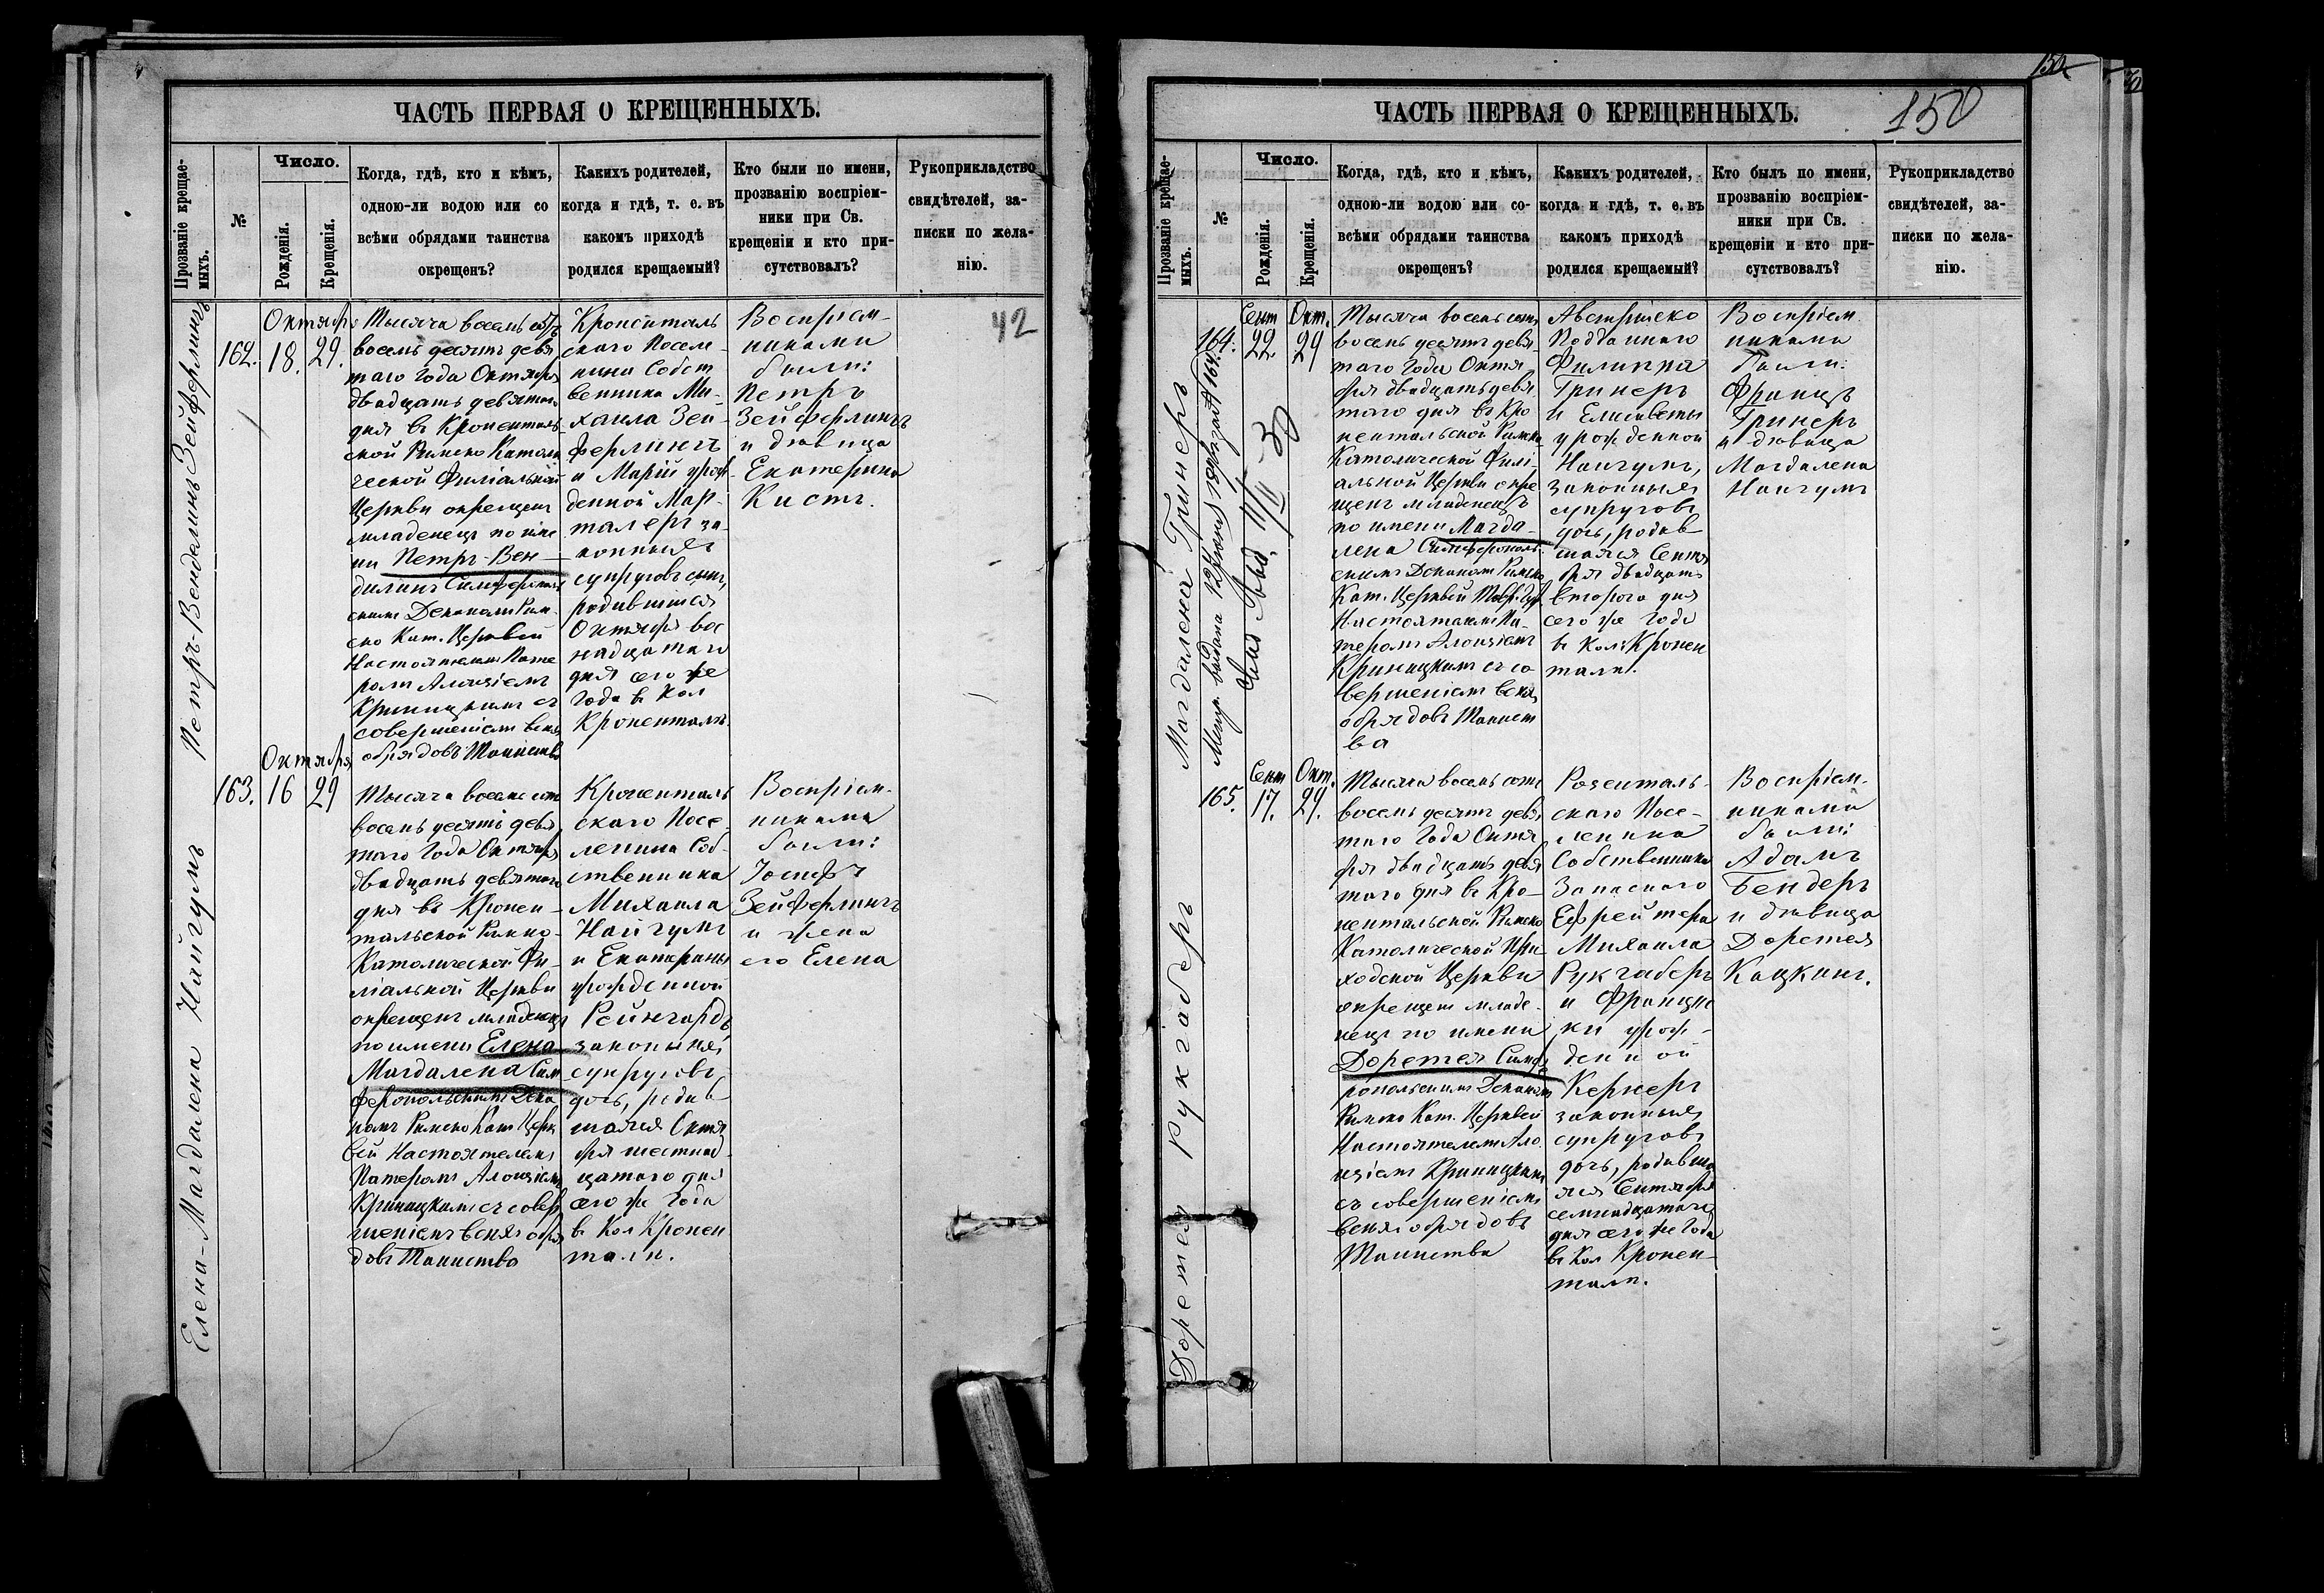 ЧАСТЬ ПЕРВАЯ О КРЕЩЕННЫХЪ.
Прозваніе крещае-
мыхъ.
№
Число.
Рожденія.
Крещенія.
Когда, гдѣ, кто и кѣмъ,
одною-ли водою или со
всѣми обрядами таинства
окрещенъ?
Какихъ родителей,
когда и гдѣ, т. е. въ
какомъ приходѣ
родился крещаемый?
Кто были по имени,
прозванію воспріем-
ники при Св.
крещеніи и кто при-
сутствовалъ?
Рукоприкладство
свидѣтелей, за-
писки по жела-
нію.
42
Петръ-Вендалинъ Зейферлингъ
162.
Октября
18. 29.
Тысяча восемь сотъ
восемь десятъ девя
таго года Октября
двадцать девятаго
дня въ Кроненталь
ской Римско Катол
ческой Филіальной
Церкви окрещенъ
младенецъ по име
ни Петръ-Вен
дилинъ Симферополь
скимъ Деканомъ Рим
ско Кат. Церквей
Настоятелемъ Пате
ромъ Алоизіемъ
Криницкимъ съ
совершеніемъ всѣхъ
обрядовъ Таинства
Кроненталь
скаго Поселе
нина Собст
венника Ми-
хаила Зей-
ферлингъ
и Маріи урож
денной Мар-
талеръ за-
конныхъ
супруговъ сынъ,
родившійся
Октября вос
надцатаго
дня сего же
года въ Кол
Кроненталѣ.
Воспріем-
никами
были:
Петръ
Зейферлингъ
и дѣвица
Екатерина
Кистъ.
Елена-Магдалена Найгумъ
163.
Октября
16 29
Тысяча восемь сотъ
восемь десятъ девя
таго года Октября
двадцать девятаго
дня въ Кронен-
тальской Римско-
Католической Фи-
ліальной Церкви
окрещенъ младенецъ
по имени Елена
Магдалена Сим
феропольскимъ Дека
номъ Римско Кат Церк
вей Настоятелемъ
Патеромъ Алоизіемъ
Криницкимъ съ совер
шеніемъ всѣхъ обря
довъ Таинства
Кроненталь
скаго Посе-
ленина Соб-
ственника
Михаила
Найгумъ
и Екатерины
урожденной
Рейнгардъ
законныхъ
супруговъ
дочь, родив
шаяся Октя
бря шестнад
цатаго дня
сего же года
въ Кол Кронен
талѣ.
Воспріем-
никами
были:
Іосифъ
Зейферлингъ
и жена
его Елена
150
ЧАСТЬ ПЕРВАЯ О КРЕЩЕННЫХЪ.
150
Прозваніе крещае-
мыхъ.
№
Число.
Рожденія.
Крещенія.
Когда, гдѣ, кто и кѣмъ,
одною-ли водою или со-
всѣми обрядами таинства
окрещенъ?
Какихъ родителей,
когда и гдѣ, т. е. въ
какомъ приходѣ
родился крещаемый?
Кто былъ по имени,
прозванію воспріем-
ники при Св.
крещеніи и кто при-
сутствовалъ?
Рукоприкладство
свидѣтелей, за-
писки по жела-
нію.
Магдалена Гринеръ
164.
Сент Окт.
22 29
Тысяча восемь сотъ
восемь десятъ девя
таго года Октя
бря двадцать девя
таго дня въ Кро
нентальской Римско
Католической Филі-
альной Церкви окре
щенъ младенецъ
по имени Магда-
лена Симферополь
скимъ Деканомъ Римско
Кат. Церквей
Настоятелемъ Па-
теромъ Алоизіемъ
Криницкимъ съ со
вершеніемъ всѣхъ
обрядовъ Таинст
ва
Австрійско
Подданнаго
Филиппа
Гринеръ
и Елисаветы
урожденной
Найгумъ,
законныхъ
супруговъ
дочь, родив
шаяся Сентя
бря двадцать
втораго дня
сего же года
въ Кол. Кронен
талѣ.
Воспріем
никами
были:
Францъ
Гринеръ
и дѣвица
Магдалена
Найгумъ
Доретея Рукгаберъ
165.
Сент Окт.
17. 29.
Тысяча восемь сотъ
восемь десятъ девя
таго года Октя
бря двадцать девя
таго дня въ Кро-
нентальской Римско
Католической При
ходской Церкви
окрещенъ младе-
нецъ по имени
Доретея Симфе
ропольскимъ Деканомъ
Римско Кат. Церквей
Настоятелемъ Ало
изіемъ Криницкимъ
съ совершеніемъ
всѣхъ обрядовъ
Таинства
Розенталь-
скаго Посе-
ленина
Собственника
Запаснаго
Ефрейтера
Михаила
Рукгаберъ
и Францис
ки урож-
денной
Кернеръ
законныхъ
супруговъ
дочь, родивша
яся Сентября
семнадцатаго
дня сего же года
въ Кол Кронен-
талѣ.
Воспріем-
никами
были:
Адамъ
Бендеръ
и дѣвица
Доретея
Кацкинъ.